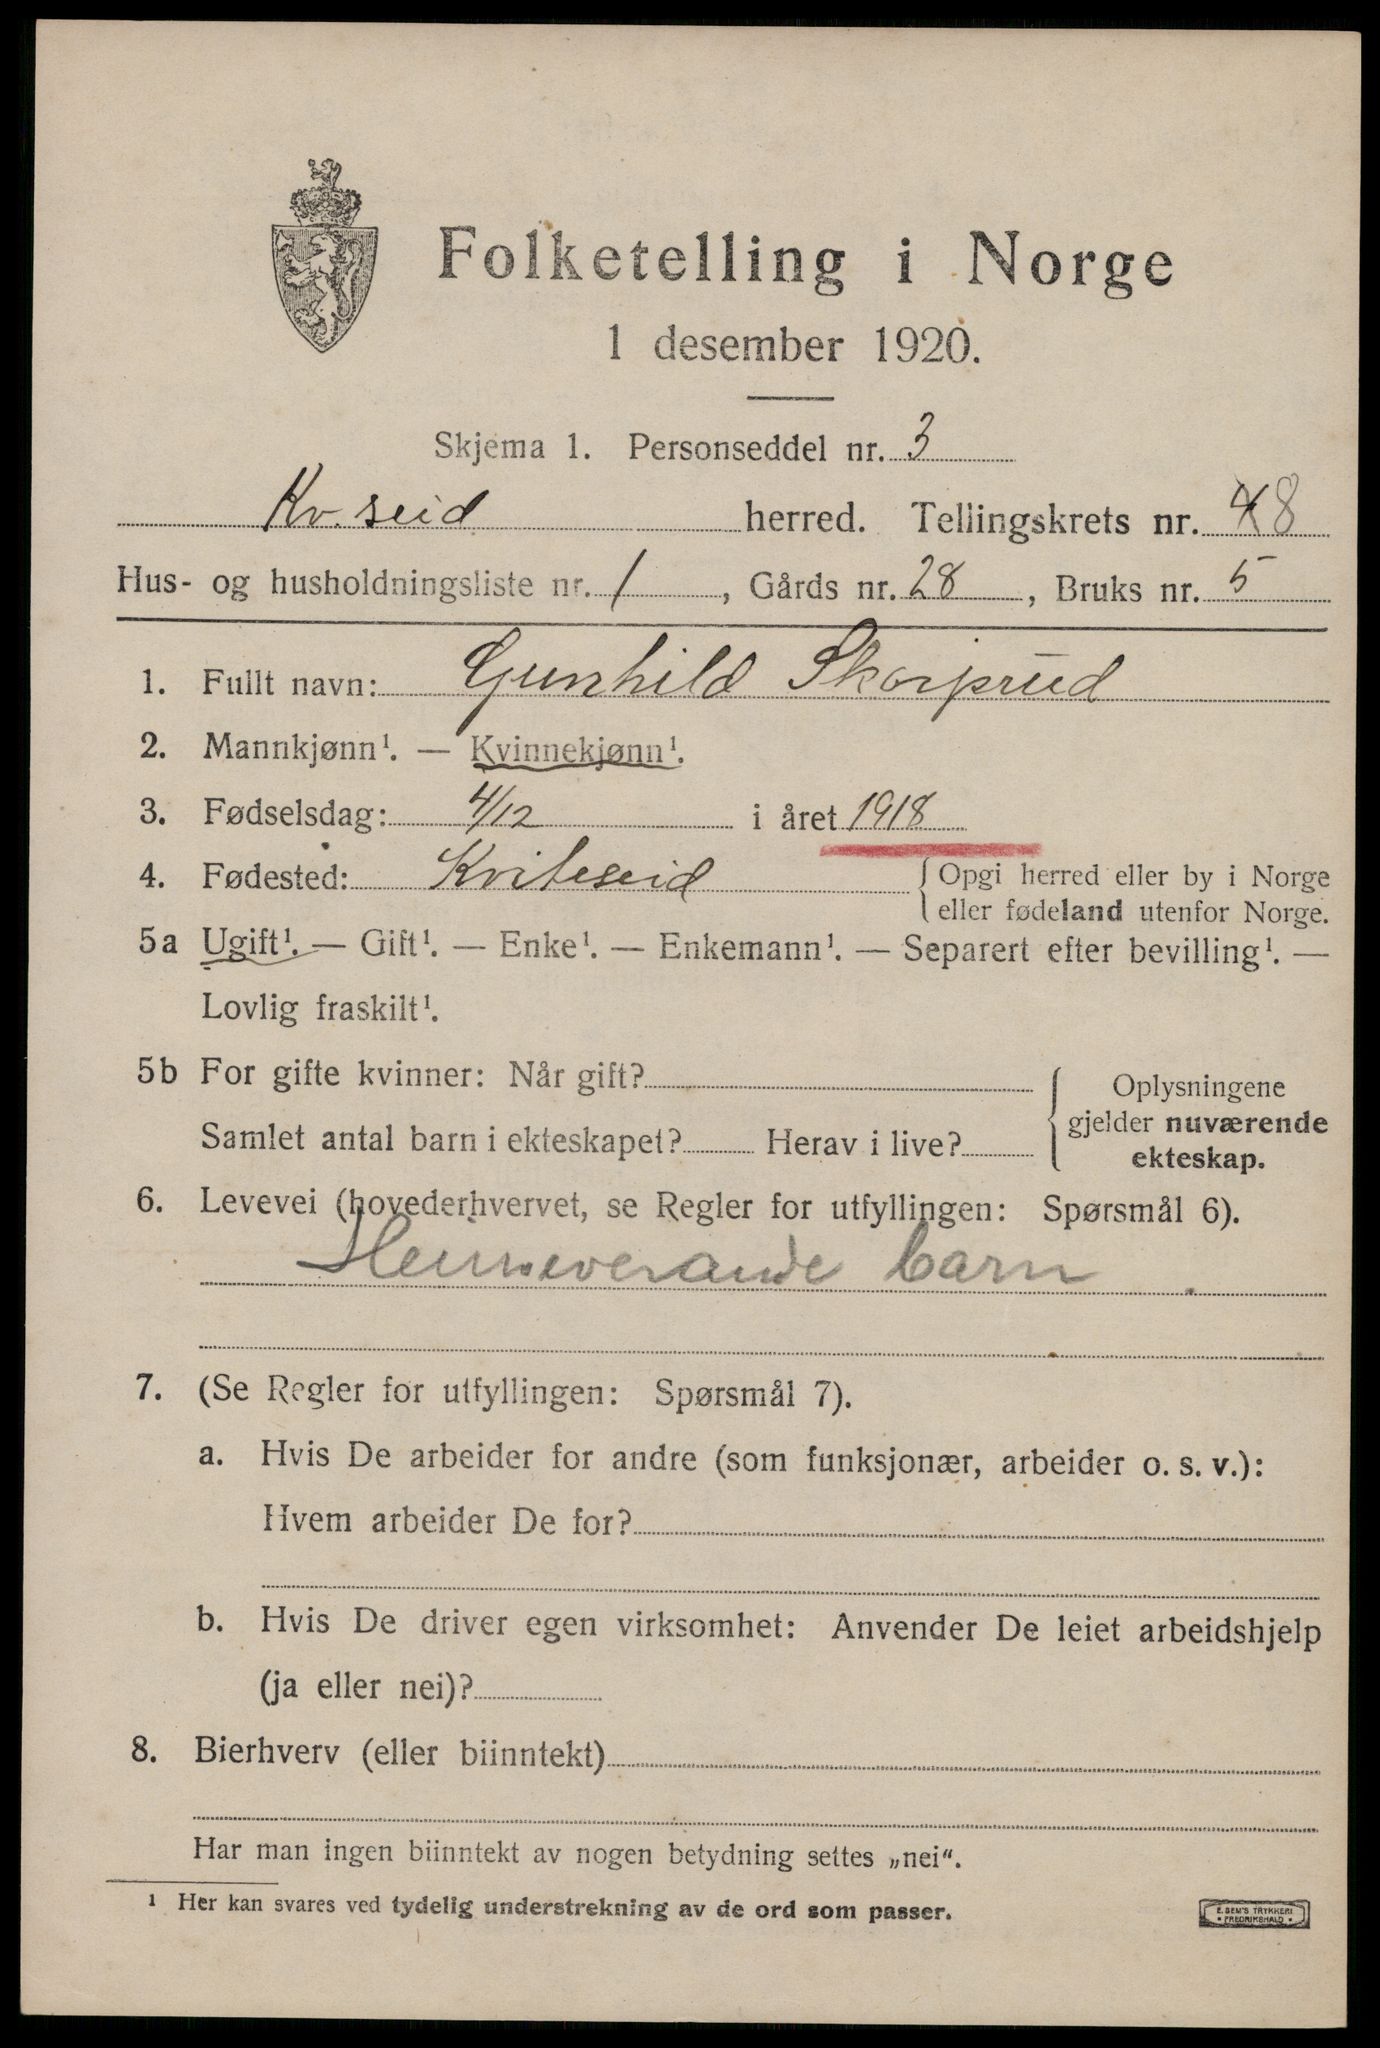 Folketelling i Norge
1 desember 1920.
Skjema 1. Personseddel nr. 3
Kv.seid herred. Tellingskrets nr. 4 8
Hus- og husholdningsliste nr. 1, Gårds nr. 28, Bruks nr. 5
1. Fullt navn: Gunhild Skorprud
2. Mannkjønn¹. — Kvinnekjønn¹.
3. Fødselsdag: 4/12 i året 1918
4. Fødested: Kviteseid { Opgi herred eller by i Norge
eller fødeland utenfor Norge.
5a Ugift¹. — Gift¹. — Enke¹. — Enkemann¹. — Separert efter bevilling¹. —
Lovlig fraskilt¹.
5b For gifte kvinner: Når gift?
Samlet antal barn i ekteskapet? Herav i live?
{ Oplysningene
gjelder nuværende
ekteskap.
6. Levevei (hovederhvervet, se Regler for utfyllingen: Spørsmål 6).
Heimeverande barn
7. (Se Regler for utfyllingen: Spørsmål 7).
a. Hvis De arbeider for andre (som funksjonær, arbeider o. s. v.):
Hvem arbeider De for?
b. Hvis De driver egen virksomhet: Anvender De leiet arbeidshjelp
(ja eller nei)?
8. Bierhverv (eller biinntekt)
Har man ingen biinntekt av nogen betydning settes „nei“.
¹ Her kan svares ved tydelig understrekning av de ord som passer.
E. SEM'S TRYKKERI
• FREDRIKSHALD •